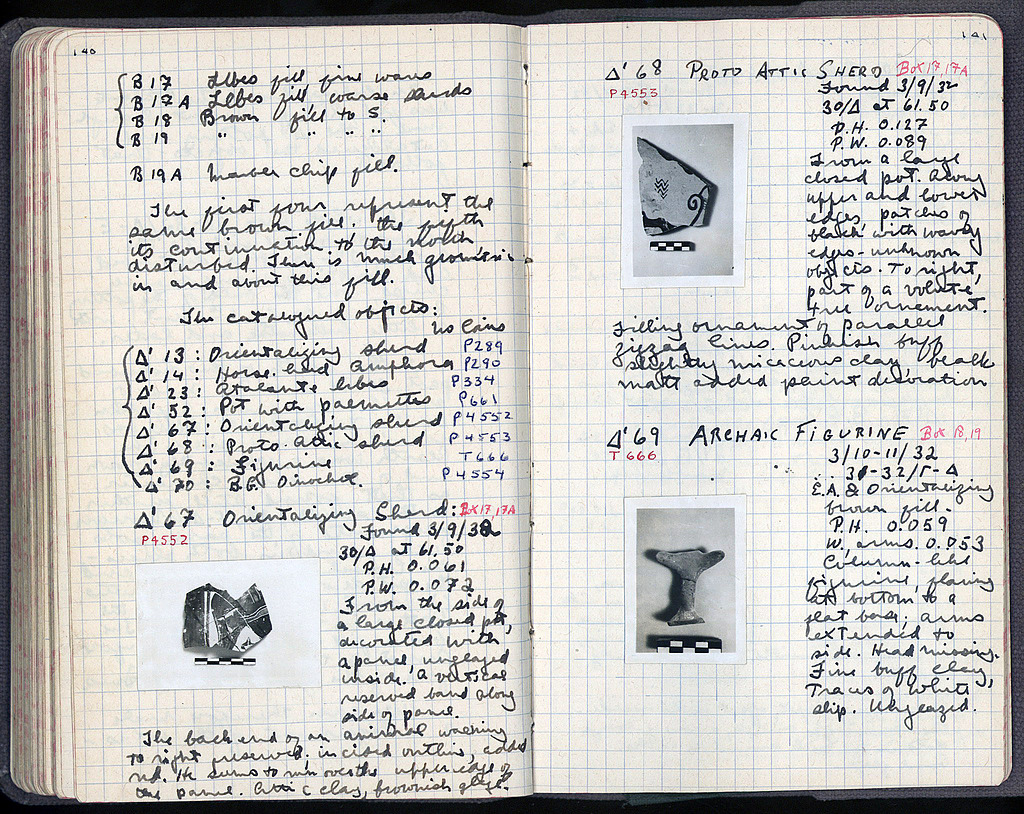 140
B 17 Lebes fill fine wares
B 17 A Lebes fill, coarse sherds
B 18 Brown fill to S.
B 19 " " " "
B 19 A Marble chip fill.
The first four represent the
same brown fill, the fifth
its continuation to the North,
disturbed. There is much
in and about this fill.
The catalogued objects:
No Coins
Δ' 13 : Orientalizing sherd P289
Δ' 14 : Horse head Amphora P290
Δ' 23 : Atalante lebes P334
Δ' 52 : Pot with palmettes P661
Δ' 67 : Orientalizing sherd P4552
Δ' 68 : Proto-Attic sherd P4553
Δ' 69 : Figurine T666
Δ' 70 : B.F. Oinochoe. P4554
Δ' 67 Orientalizing Sherd: Box 17, 17A
P4552
Found 3/9/32
30/Δ at 61.50
P.H. 0.061
P.W. 0.072
From the side of
a large closed pot,
decorated with
a panel, unglazed
inside. A vertical
reserved band along
side of panel.
The back end of an animal walking
to right preserved, incised outline, added
red. He seems to run over the upper edge of
the panel. Attic clay, brownish glaze.
141
Δ' 68 PROTO ATTIC SHERD Box 17, 17A
P4553
Found 3/9/32
30/Δ at 61.50
P.H. 0.127
P.W. 0.089
From a large
closed pot. Along
upper and lower
edges patches of
black with wavy
edges - unknown
objects. To right,
part of a volute
tree ornament.
Filling ornament of parallel
zigzag lines. Pinkish buff
slightly micaceous clay black
matt added paint decoration
Δ' 69 ARCHAIC FIGURINE Box 18, 19
T 666
3/10-11/32
31-32/Γ-Δ
E.A. & Orientalizing
brown fill.
P.H. 0.059
W. arms. 0.053
Column-like
figurine, flaring
at bottom to a
flat base; arms
extended to
side. Head missing.
Fine buff clay,
Traces of white
slip. Unglazed.